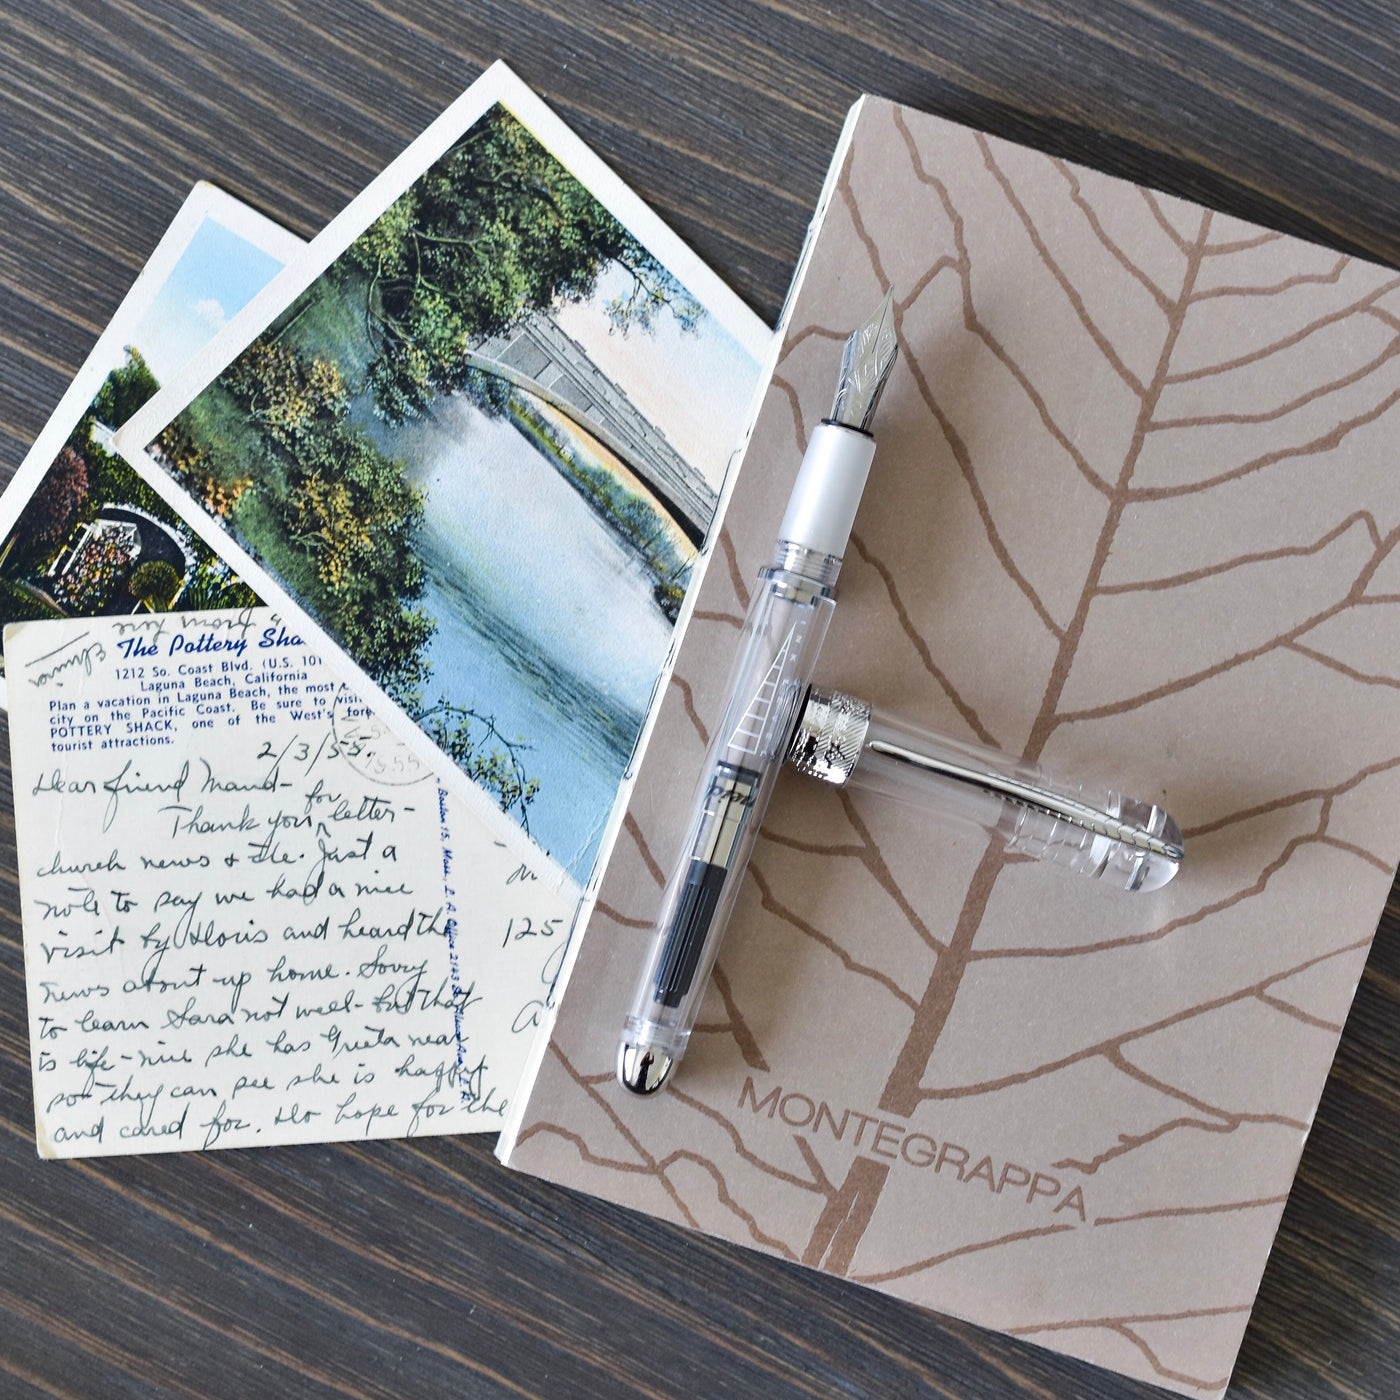 The Pottery Sha
1212 So. Coast Blvd. (U.S. 101
Laguna Beach, California
Plan a vacation in Laguna Beach, the most
city on the Pacific Coast. Be sure to visit
POTTERY SHACK, one of the West's
tourist attractions.
2/3/55.
1955
Dear friend Maud-
Thank you for letter-
church news & etc. Just a
note to say we had a nice
visit by Doris and heard the
news about up home. Sorry
to learn Sara not well - but that
is life - nice she has Greta near
so they can see she is happy
and cared for. Do hope for the
125
INK
MONTEGRAPPA